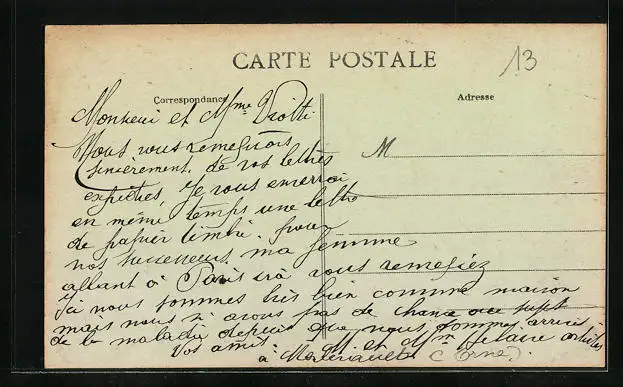 13
CARTE POSTALE
Correspondance
Adresse
M
Monsieur et Mme Viotti
Nous vous remercions
sincèrement, de vos lettres
expédiées, Je vous enverrai
en même temps une lettre
de papier timbré. pour
nos successeurs, ma femme
allant à Paris ira vous remerciez
Ici nous sommes très bien comme maison
mais nous n'avons pas de chance au sujet
de la maladie depuis que nous sommes arrivés
Vos amis. M et Mme
à (Orne).